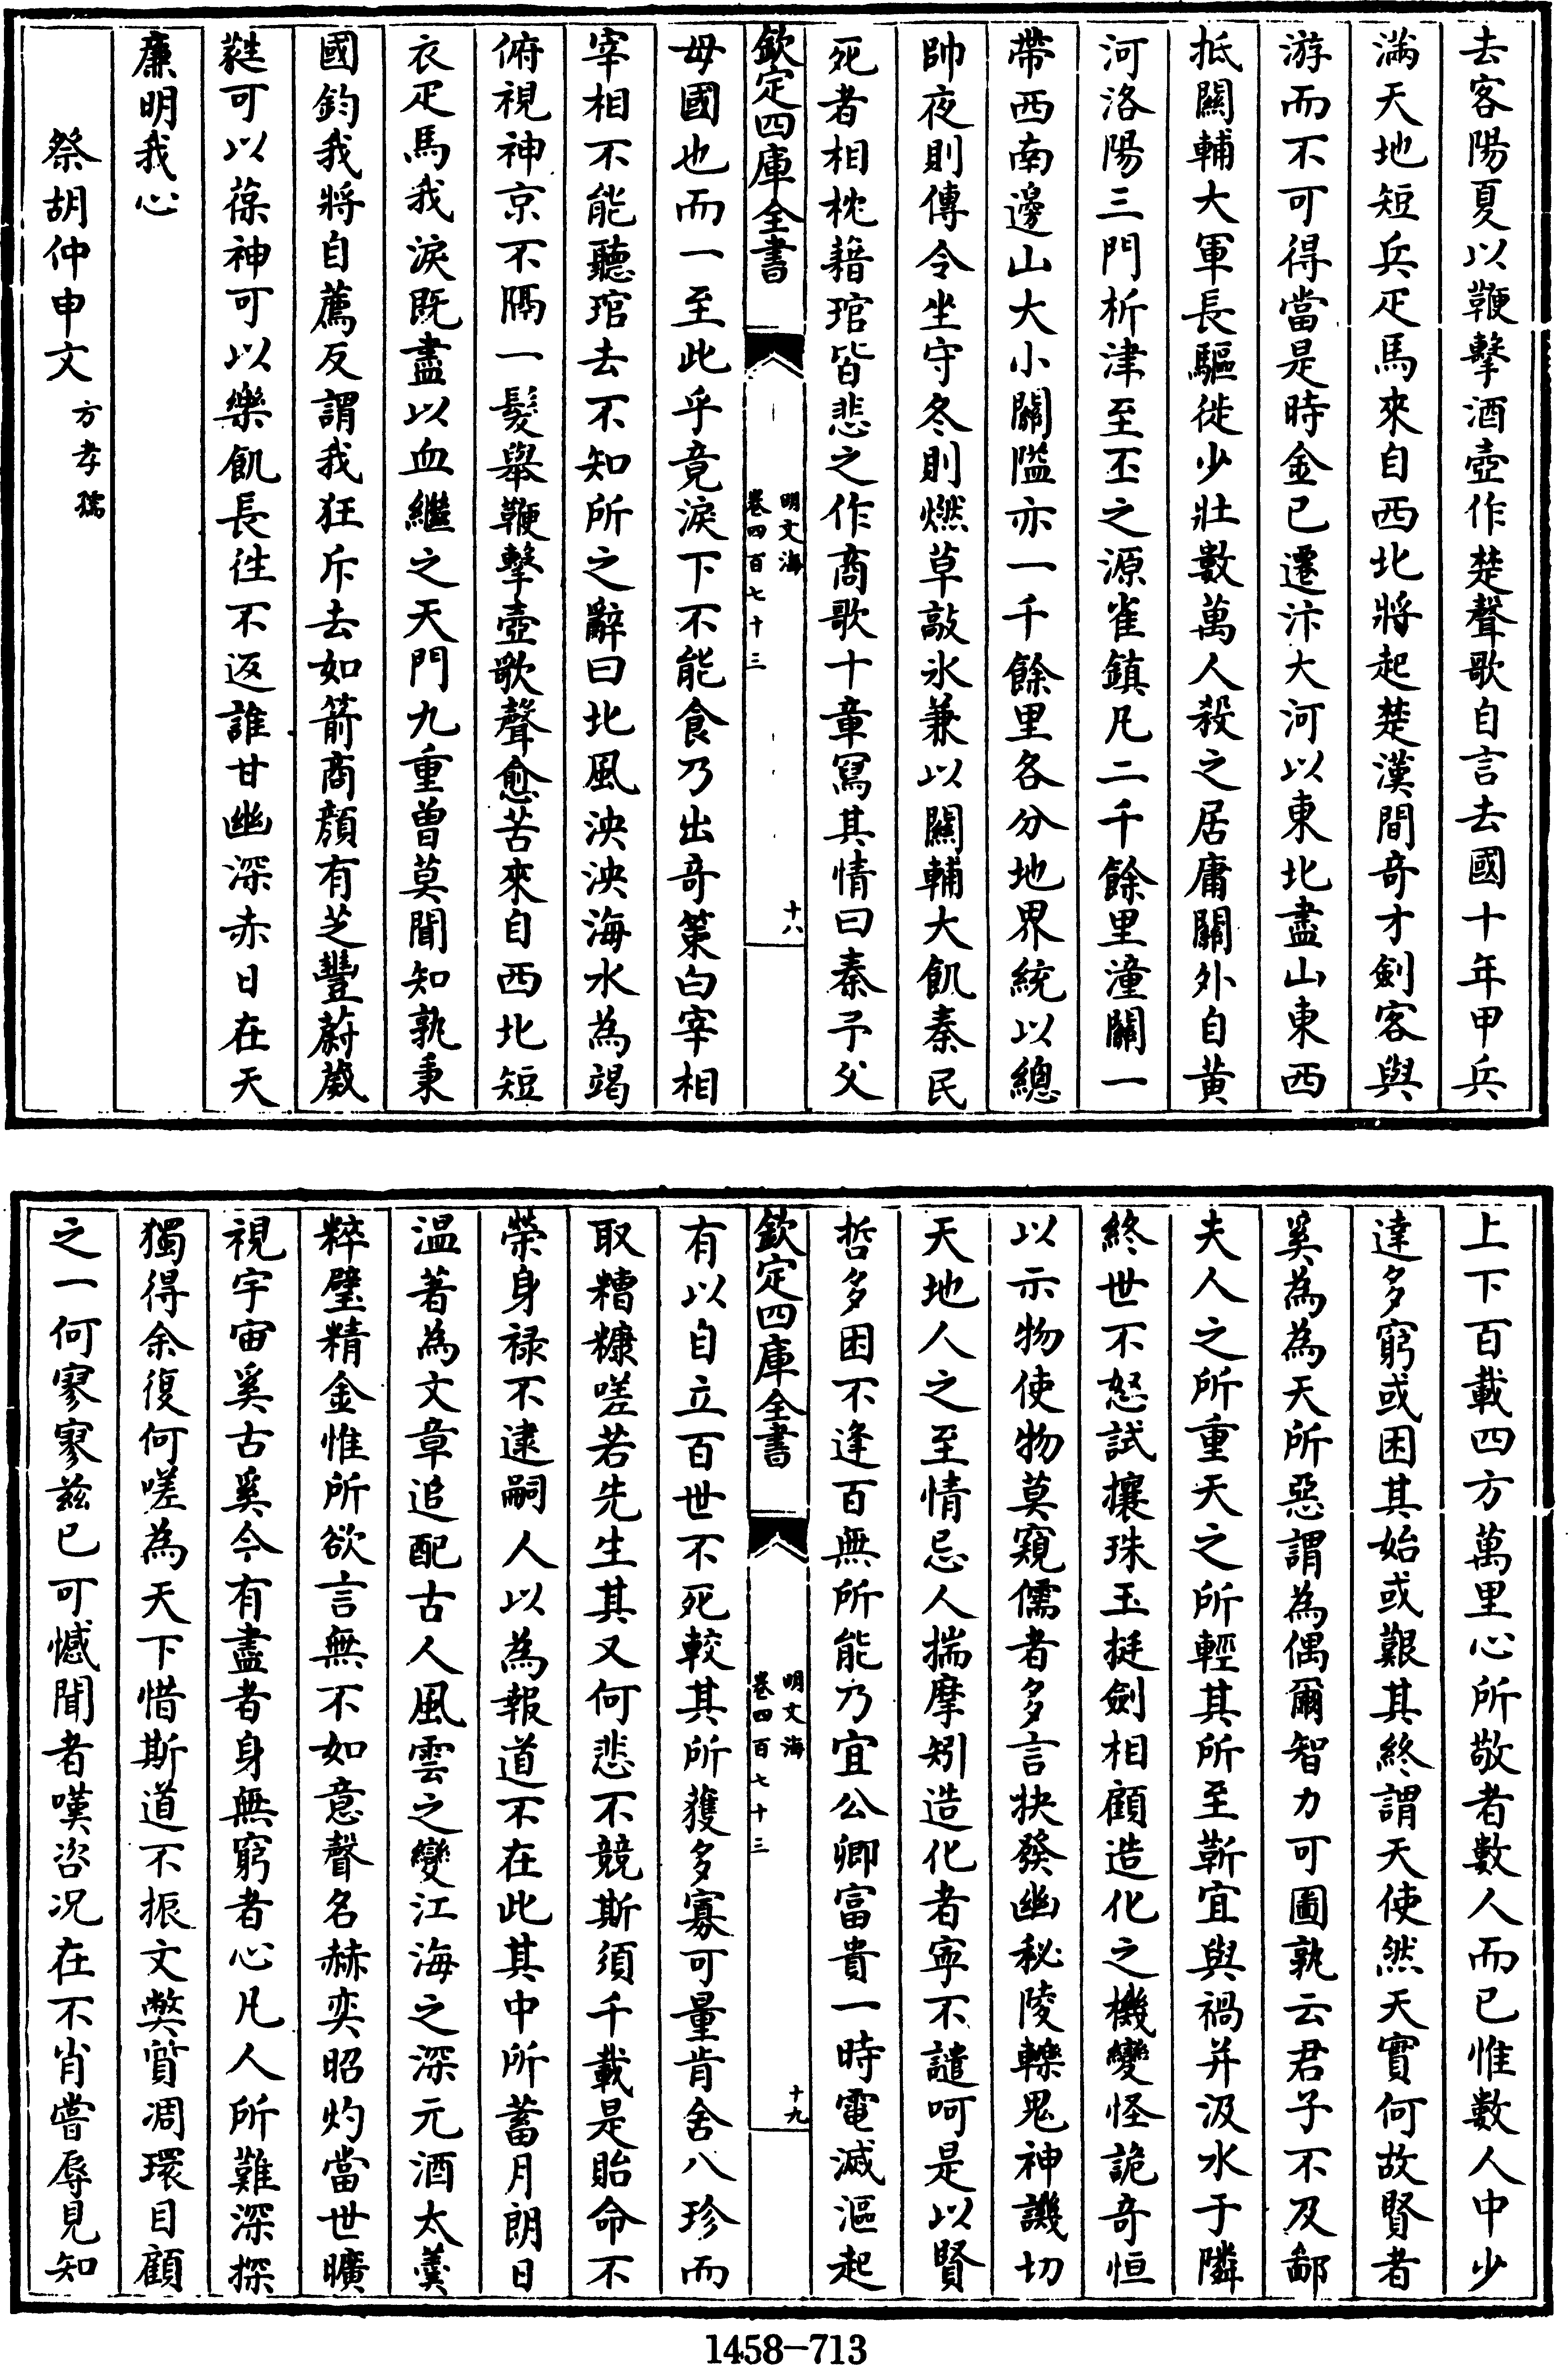 去客陽夏以鞭擊酒壺作楚聲歌自言去國十年甲兵
滿天地短兵疋馬來自西北將起楚漢間奇才劍客與
游而不可得當是時金已遷汴大河以東北盡山東西
抵關輔大軍長驅徙少壯數萬人殺之居庸關外自黃
河洛陽三門析津至丕之源雀鎮凡二千餘里潼關一
帶西南邊山大小關隘亦一千餘里各分地界統以總
帥夜則傳令坐守冬則燃草敲氷兼以關輔大飢秦民
死者相枕藉琯皆悲之作商歌十章寫其情曰秦予父
欽定四庫全書
明文海
卷四百七十三
十八
母國也而一至此乎竟淚下不能食乃出奇策白宰相
宰相不能聽琯去不知所之辭曰北風泱泱海水為竭
俯視神京不隔一髮舉鞭擊壺歌聲愈苦來自西北短
衣疋馬我淚既盡以血繼之天門九重曾莫聞知孰秉
國鈞我將自薦反謂我狂斥去如箭商顏有芝豐蔚葳
蕤可以葆神可以樂飢長徃不返誰甘幽深赤日在天
廉明我心
祭胡仲申文 方孝孺
上下百載四方萬里心所敬者數人而已惟數人中少
達多窮或困其始或艱其終謂天使然天實何故賢者
奚為為天所惡謂為偶爾智力可圖孰云君子不及鄙
夫人之所重天之所輕其所至靳宜與禍并汲水于隣
終世不怒試攘珠玉挺劍相顧造化之機變怪詭奇恒
以示物使物莫窺儒者多言抉發幽秘陵轢鬼神譏切
天地人之至情忌人揣摩矧造化者寧不譴呵是以賢
哲多困不逢百無所能乃宜公卿富貴一時電滅漚起
欽定四庫全書
明文海
卷四百七十三
十九
有以自立百世不死較其所獲多寡可量肯舍八珍而
取糟糠嗟若先生其又何悲不競斯須千載是貽命不
榮身禄不逮嗣人以為報道不在此其中所蓄月朗日
温著為文章追配古人風雲之變江海之深元酒太羹
粹璧精金惟所欲言無不如意聲名赫奕昭灼當世曠
視宇宙奚古奚今有盡者身無窮者心凡人所難深探
獨得余復何嗟為天下惜斯道不振文弊質凋環目顧
之一何寥寥兹已可憾聞者嘆咨况在不肖嘗辱見知
1458-713